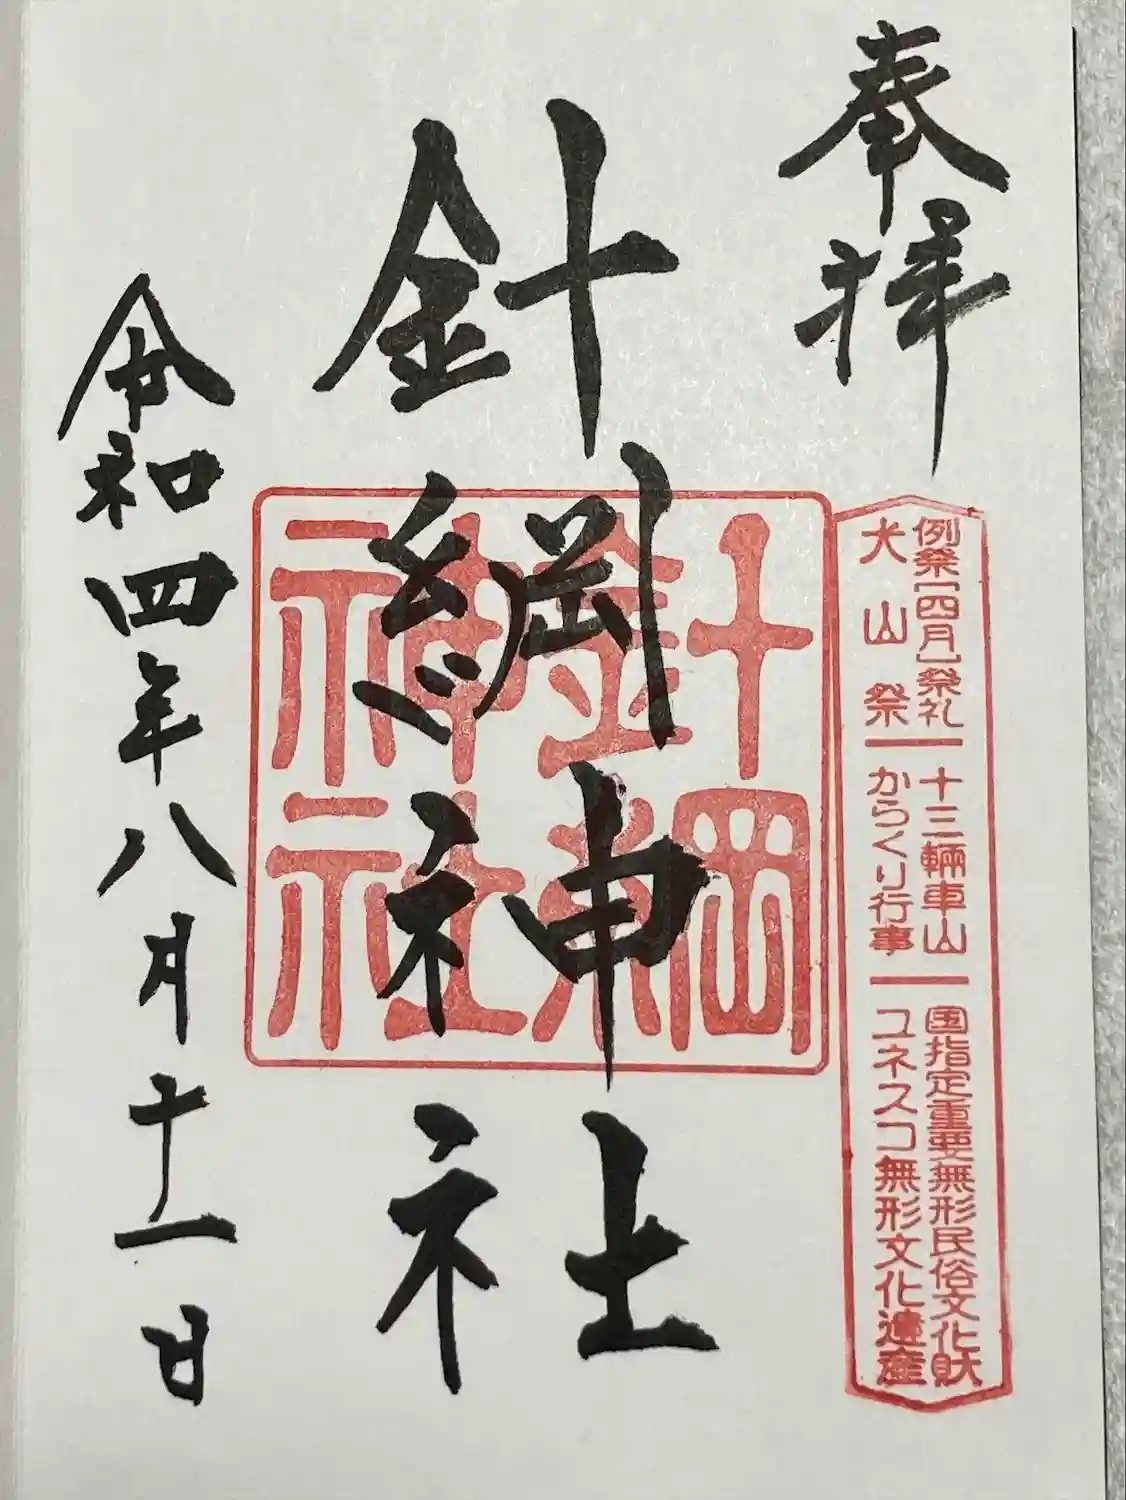 奉拝
例祭[四月]祭礼
犬山祭
十三輛車山
からくり行事
国指定重要無形民俗文化財
ユネスコ無形文化遺産
針綱神社
針綱神社
令和四年八月十一日